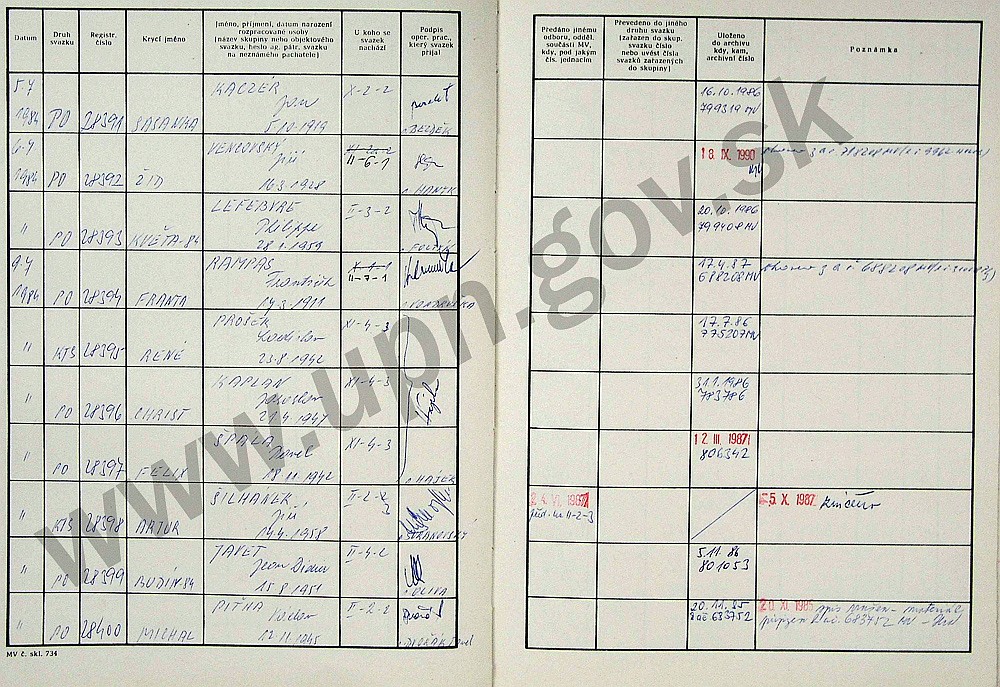 Datum
Druh
svazku
Registr.
číslo
Krycí jméno
Jméno, příjmení, datum narození
rozpracované osoby
(název skupiny nebo objektového
svazku, heslo ag. pátr. svazku
na neznámého pachatele)
U koho se
svazek
nachází
Podpis
oper. prac.,
který svazek
přijal
Předáno jinému
odboru, odděl.
součásti MV,
kdy, pod jakým
čís. jednacím
Převedeno do jiného
druhu svazku
(zařazen do skup.
svazku číslo
nebo uvést čísla
svazků zařazených
do skupiny)
Uloženo
do archivu
kdy, kam,
archivní číslo
Poznámka
KACZÉR
X-2-2
5.10.1919
1984 PO 28391 SASANKA
16.10.1986
799319 MV
VENCOVSKÝ
Jiří
II-6-1
16.3.1928
1984 PO 28392 ŽID
18. IX. 1990
LEFEBVRE
Philippe
II-3-2
28.1.1959
" PO 28393 KVĚTA-84
20.10.1986
799408 MV
RAMPAS
František
II-7-1
14.3.1911
1984 PO 28394 FRANTA
17.4.87
688208 MV
PROŠEK
Ladislav
XI-4-3
23.8.1942
" KTS 28395 RENÉ
17.7.86
775207 MV
KAPLAN
Jaroslav
XI-4-3
21.4.1947
" PO 28396 CHRIST
31.1.1986
783786
ŠPALA
Pavel
XI-4-3
18.11.1942
" PO 28397 FELIX
HÁJEK
12. III. 1987
806342
ŠILHANEK
Jiří
II-2-2
3
14.4.1958
" KTS 28398 ARTUR
II-2-3
5. X. 1987 zničen
JAVET
Jean Didier
II-4-2
15.8.1951
" PO 28399 BUDÍN 84
OLIVA
5.11.86
801053
PITHA
Václav
II-2-2
12.11.1945
" PO 28400 MICHAL
DVOŘÁK Pavel
20.11.85
683752
20. XI. 1985
683752 MV
MV č. skl. 734
www.upn.gov.sk